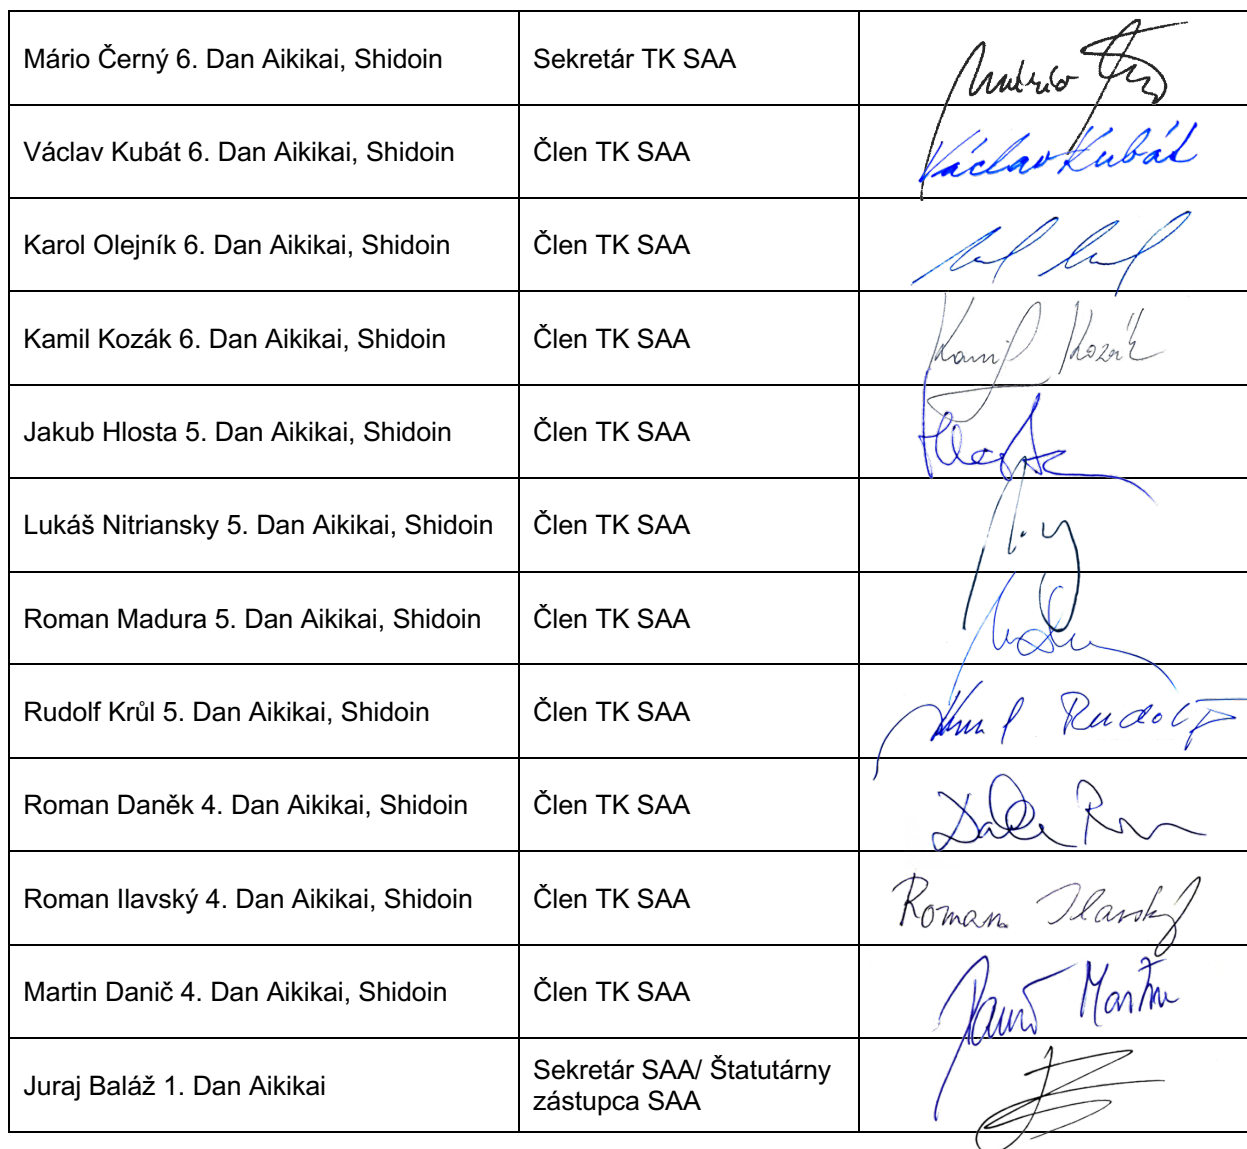 Mário Černý 6. Dan Aikikai, Shidoin Sekretár TK SAA
Václav Kubát 6. Dan Aikikai, Shidoin Člen TK SAA Václav Kubát
Karol Olejník 6. Dan Aikikai, Shidoin Člen TK SAA
Kamil Kozák 6. Dan Aikikai, Shidoin Člen TK SAA Kamil Kozák
Jakub Hlosta 5. Dan Aikikai, Shidoin Člen TK SAA
Lukáš Nitriansky 5. Dan Aikikai, Shidoin Člen TK SAA
Roman Madura 5. Dan Aikikai, Shidoin Člen TK SAA
Rudolf Krůl 5. Dan Aikikai, Shidoin Člen TK SAA Rudolf
Roman Daněk 4. Dan Aikikai, Shidoin Člen TK SAA
Roman Ilavský 4. Dan Aikikai, Shidoin Člen TK SAA Roman Ilavský
Martin Danič 4. Dan Aikikai, Shidoin Člen TK SAA Martin
Juraj Baláž 1. Dan Aikikai Sekretár SAA/ Štatutárny
zástupca SAA